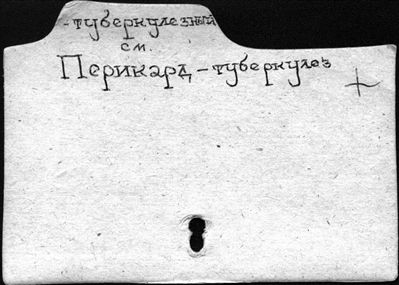 -туберкулезный
см.
Перикард - туберкулез